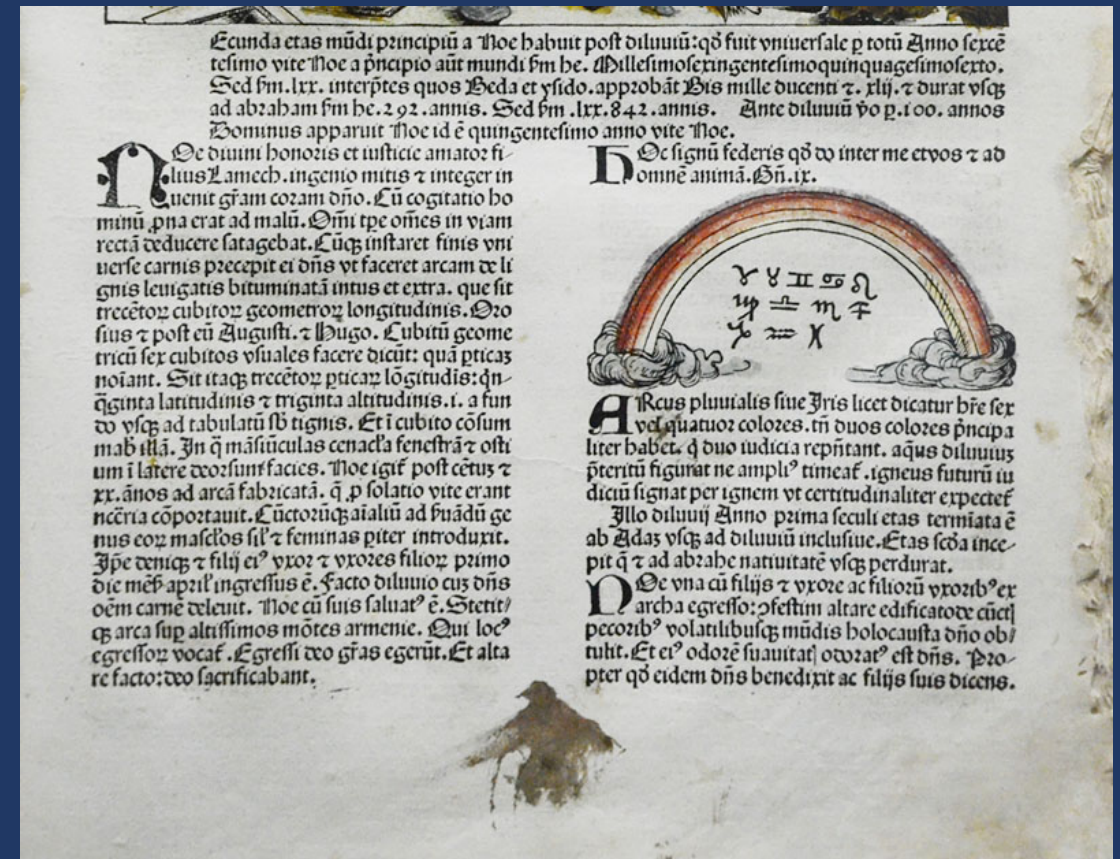 Ecunda etas mūdi principiū a Noe habuit post diluuiū: qď fuit vniuersale ꝑ totū Anno sexcē
tesimo vite Noe a pͥncipio aūt mundi ẜm he. Millesimosexingentesimoquinquagesimosexto.
Sed ẜm .lxx. interp̄tes quos Beda et ysido. approbāt Bis mille ducenti ⁊. xlij. ⁊ durat vsqꝫ
ad abraham ẜm he. 292. annis. Sed ẜm .lxx. 842. annis. Ante diluuiū v̄o ꝑ .100. annos
Dominus apparuit Noe id ē quingentesimo anno vite Noe.
NOe diuini honoris et iusticie amator fi-
lius Lamech. ingenio mitis ⁊ integer in
uenit gr̄am coram dn̄o. Cū cogitatio ho
minū ꝓna erat ad malū. Om̄i tꝑe om̄es in viam
rectā deducere satagebat. Cūqꝫ instaret finis vni
uerse carnis precepit ei dn̄s vt faceret arcam de li
gnis leuigatis bituminatā intus et extra. que sit
trecētoꝝ cubitoꝝ geometroꝝ longitudinis. Oro
sius ⁊ post eū Augusti. ⁊ Hugo. Cubitū geome
tricū sex cubitos vsuales facere dicūt: quā ꝑticaꝫ
noīant. Sit itaqꝫ trecētoꝝ ꝑticaꝝ lōgitudīs: qͥn-
qͣginta latitudinis ⁊ triginta altitudinis .i. a fun
do vsqꝫ ad tabulatū sb̄ tignis. Et ī cubito cōsum
mab illā. In q̄ māsiūculas cenacl̄a fenestrā ⁊ osti
um ī latere deorsum facies. Noe igit̄ post cētuꝫ ⁊
xx. ānos ad arcā fabricatā. q̄ ꝓ solatio vite erant
nccͣria cōportauit. Cūctorūqꝫ aīaliū ad ẜuādū ge
nus eoꝝ mascl̓os sil̓ ⁊ feminas ꝑiter introduxit.
Ip̄e deniqꝫ ⁊ filij eiꝰ vxor ⁊ vxores filioꝝ primo
die mēẜ april̓ ingressus ē. Facto diluuio cuꝫ dn̄s
oēm carnē deleuit. Noe cū suis saluatꝰ ē. Stetit/
qꝫ arca suꝑ altissimos mōtes armenie. Qui locꝰ
egressoꝝ vocat̄. Egressi deo gr̄as egerūt. Et alta
re facto: deo sacrificabant.
HOc signū federis qď do inter me et vos ⁊ ad
omnē animā. Gn̄. ix.
♈ ♉ ♊ ♋ ♌
♍ ♎ ♏ ♐
♑ ♒ ♓
ARcus pluuialis siue Iris licet dicatur hr̄e sex
vel quatuor colores. tn̄ duos colores pͥncipa
liter habet. q̇ duo iudicia repn̄tant. aqus diluuiuꝫ
p̄teritū figurat ne ampliꝰ timeat̄. igneus futurū iu
diciū signat per ignem vt certitudinaliter expectet̄
Illo diluuij Anno prima seculi etas termīata ē
ab Adaꝫ vsqꝫ ad diluuiū inclusiue. Etas scďa ince-
pit q̄ ⁊ ad abrahe natiuitatē vsqꝫ perdurat.
NOe vna cū filijs ⁊ vxore ac filiorū vxoribꝰ ex
archa egresso: ꝯfestim altare edificato de cūctꝭ
pecoribꝰ volatilibusqꝫ mūdis holocausta dn̄o ob/
tulit. Et eiꝰ odorē suauitatꝭ odoratꝰ est dn̄s. Pro-
pter qď eidem dn̄s benedixit ac filijs suis dicens.